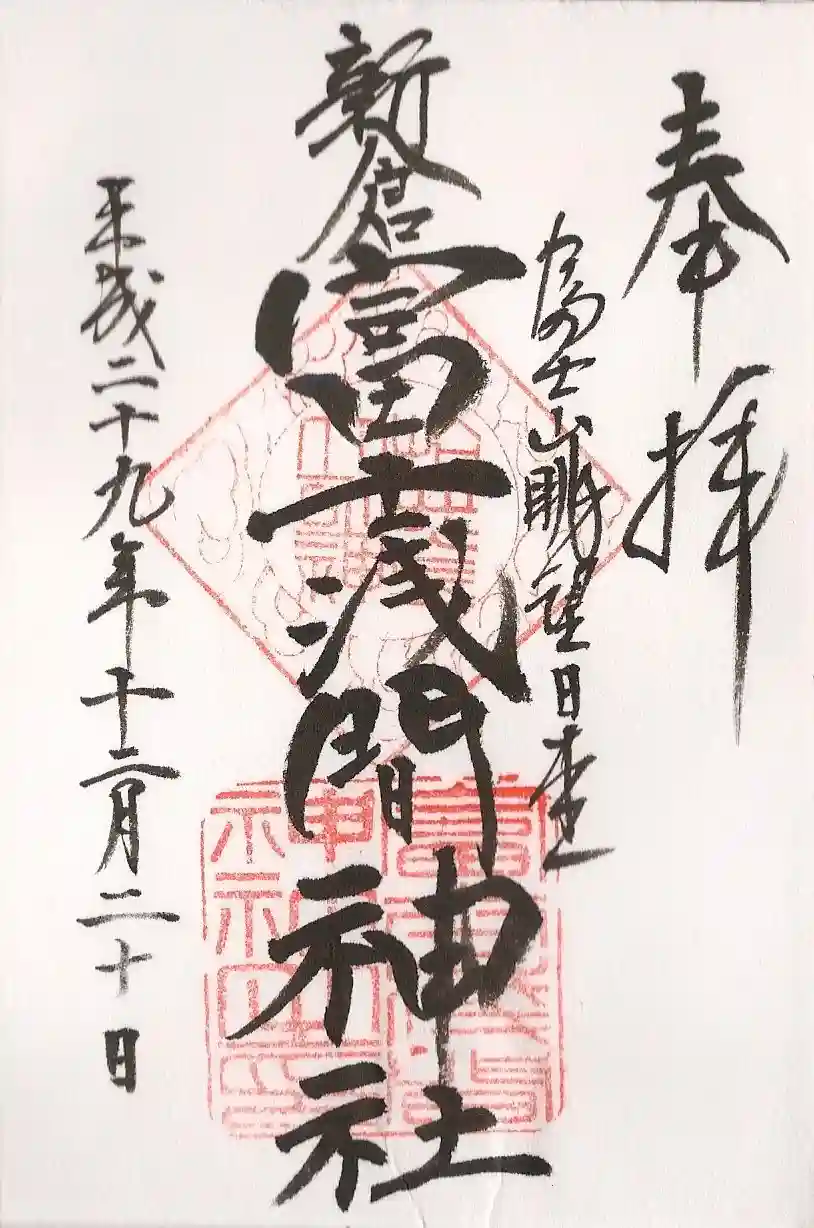 奉拝
富士山眺望日本一
新倉富士浅間神社
平成二十九年十二月二十日